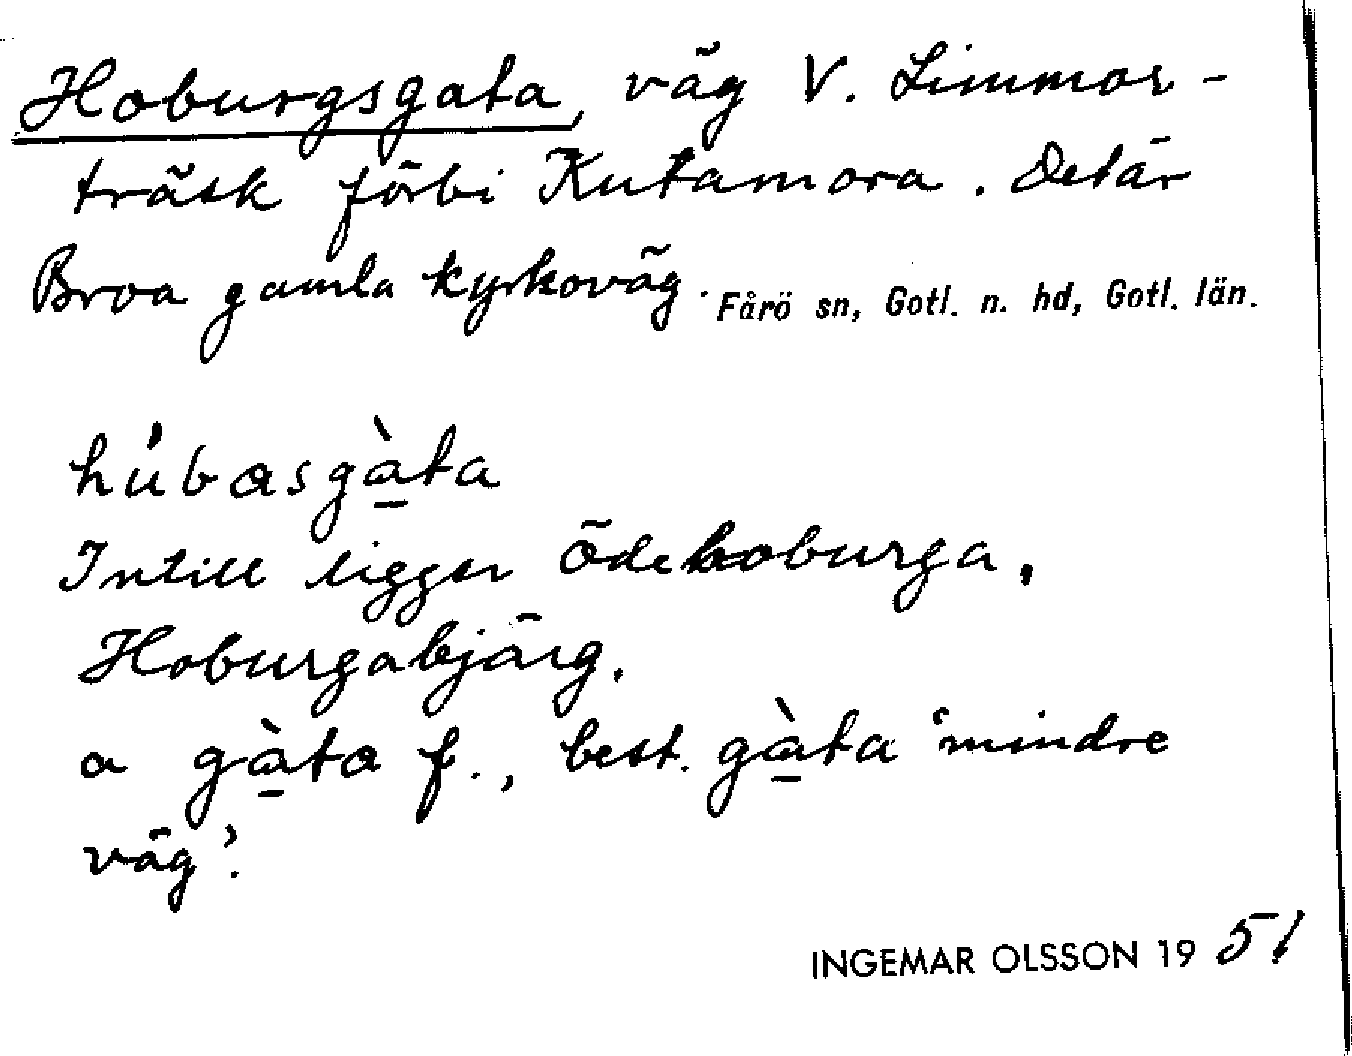 Hoburgsgata, väg V. Limmor-
träsk förbi Kutamora. Det är
Broa gamla kyrkoväg. Fårö sn, Gotl. n. hd, Gotl. län.
hu̍basgà̱ta
Intill ligger Ödehoburga,
Hoburgabjärg.
a gà̱ta f., best. gà̱ta ‘mindre
väg’.
INGEMAR OLSSON 1951